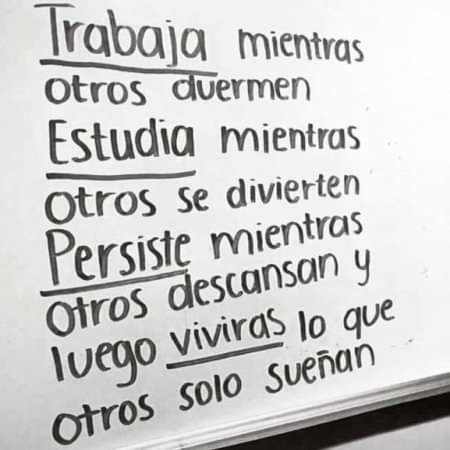 Trabaja mientras
otros duermen
Estudia mientras
otros se divierten
Persiste mientras
otros descansan y
luego viviras lo que
otros solo sueñan